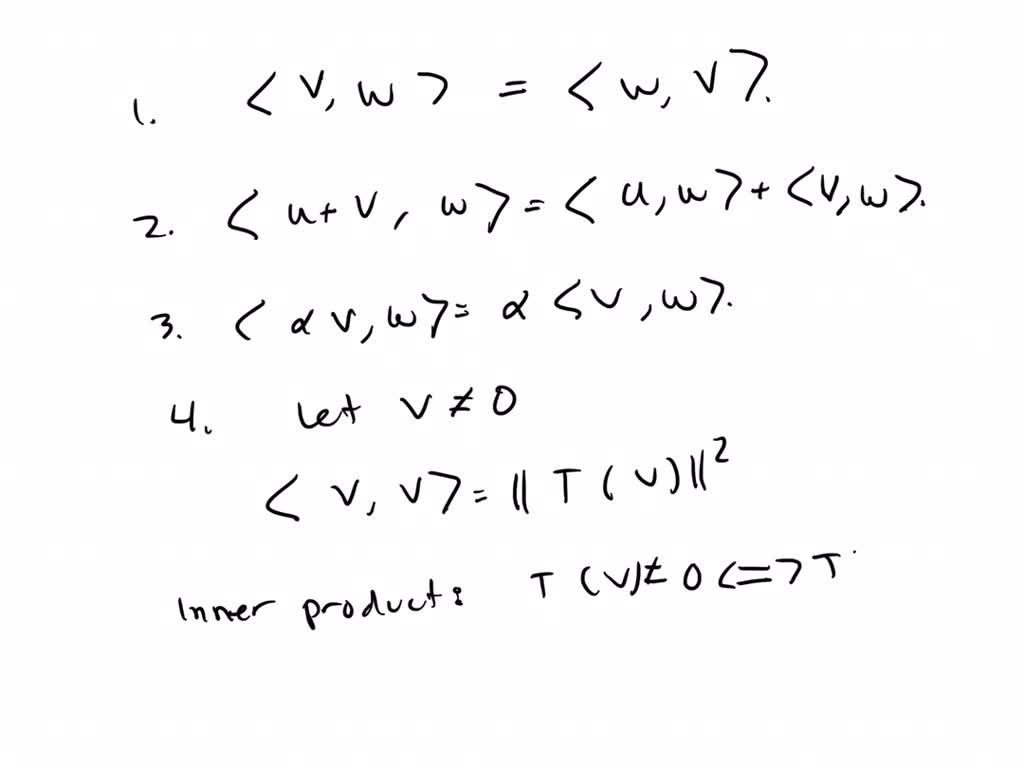 1. < v, w > = < w, v >.
2. < u+ v, w > = < u, w > + < v, w >.
3. < α v, w > = α < v, w >.
4. let v ≠ 0
< v, v > = || T ( v ) ||²
Inner product: T (v) ≠ 0 <=> T